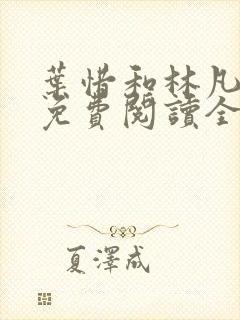 葉惜和林凡
免費閱讀全
夏澤成